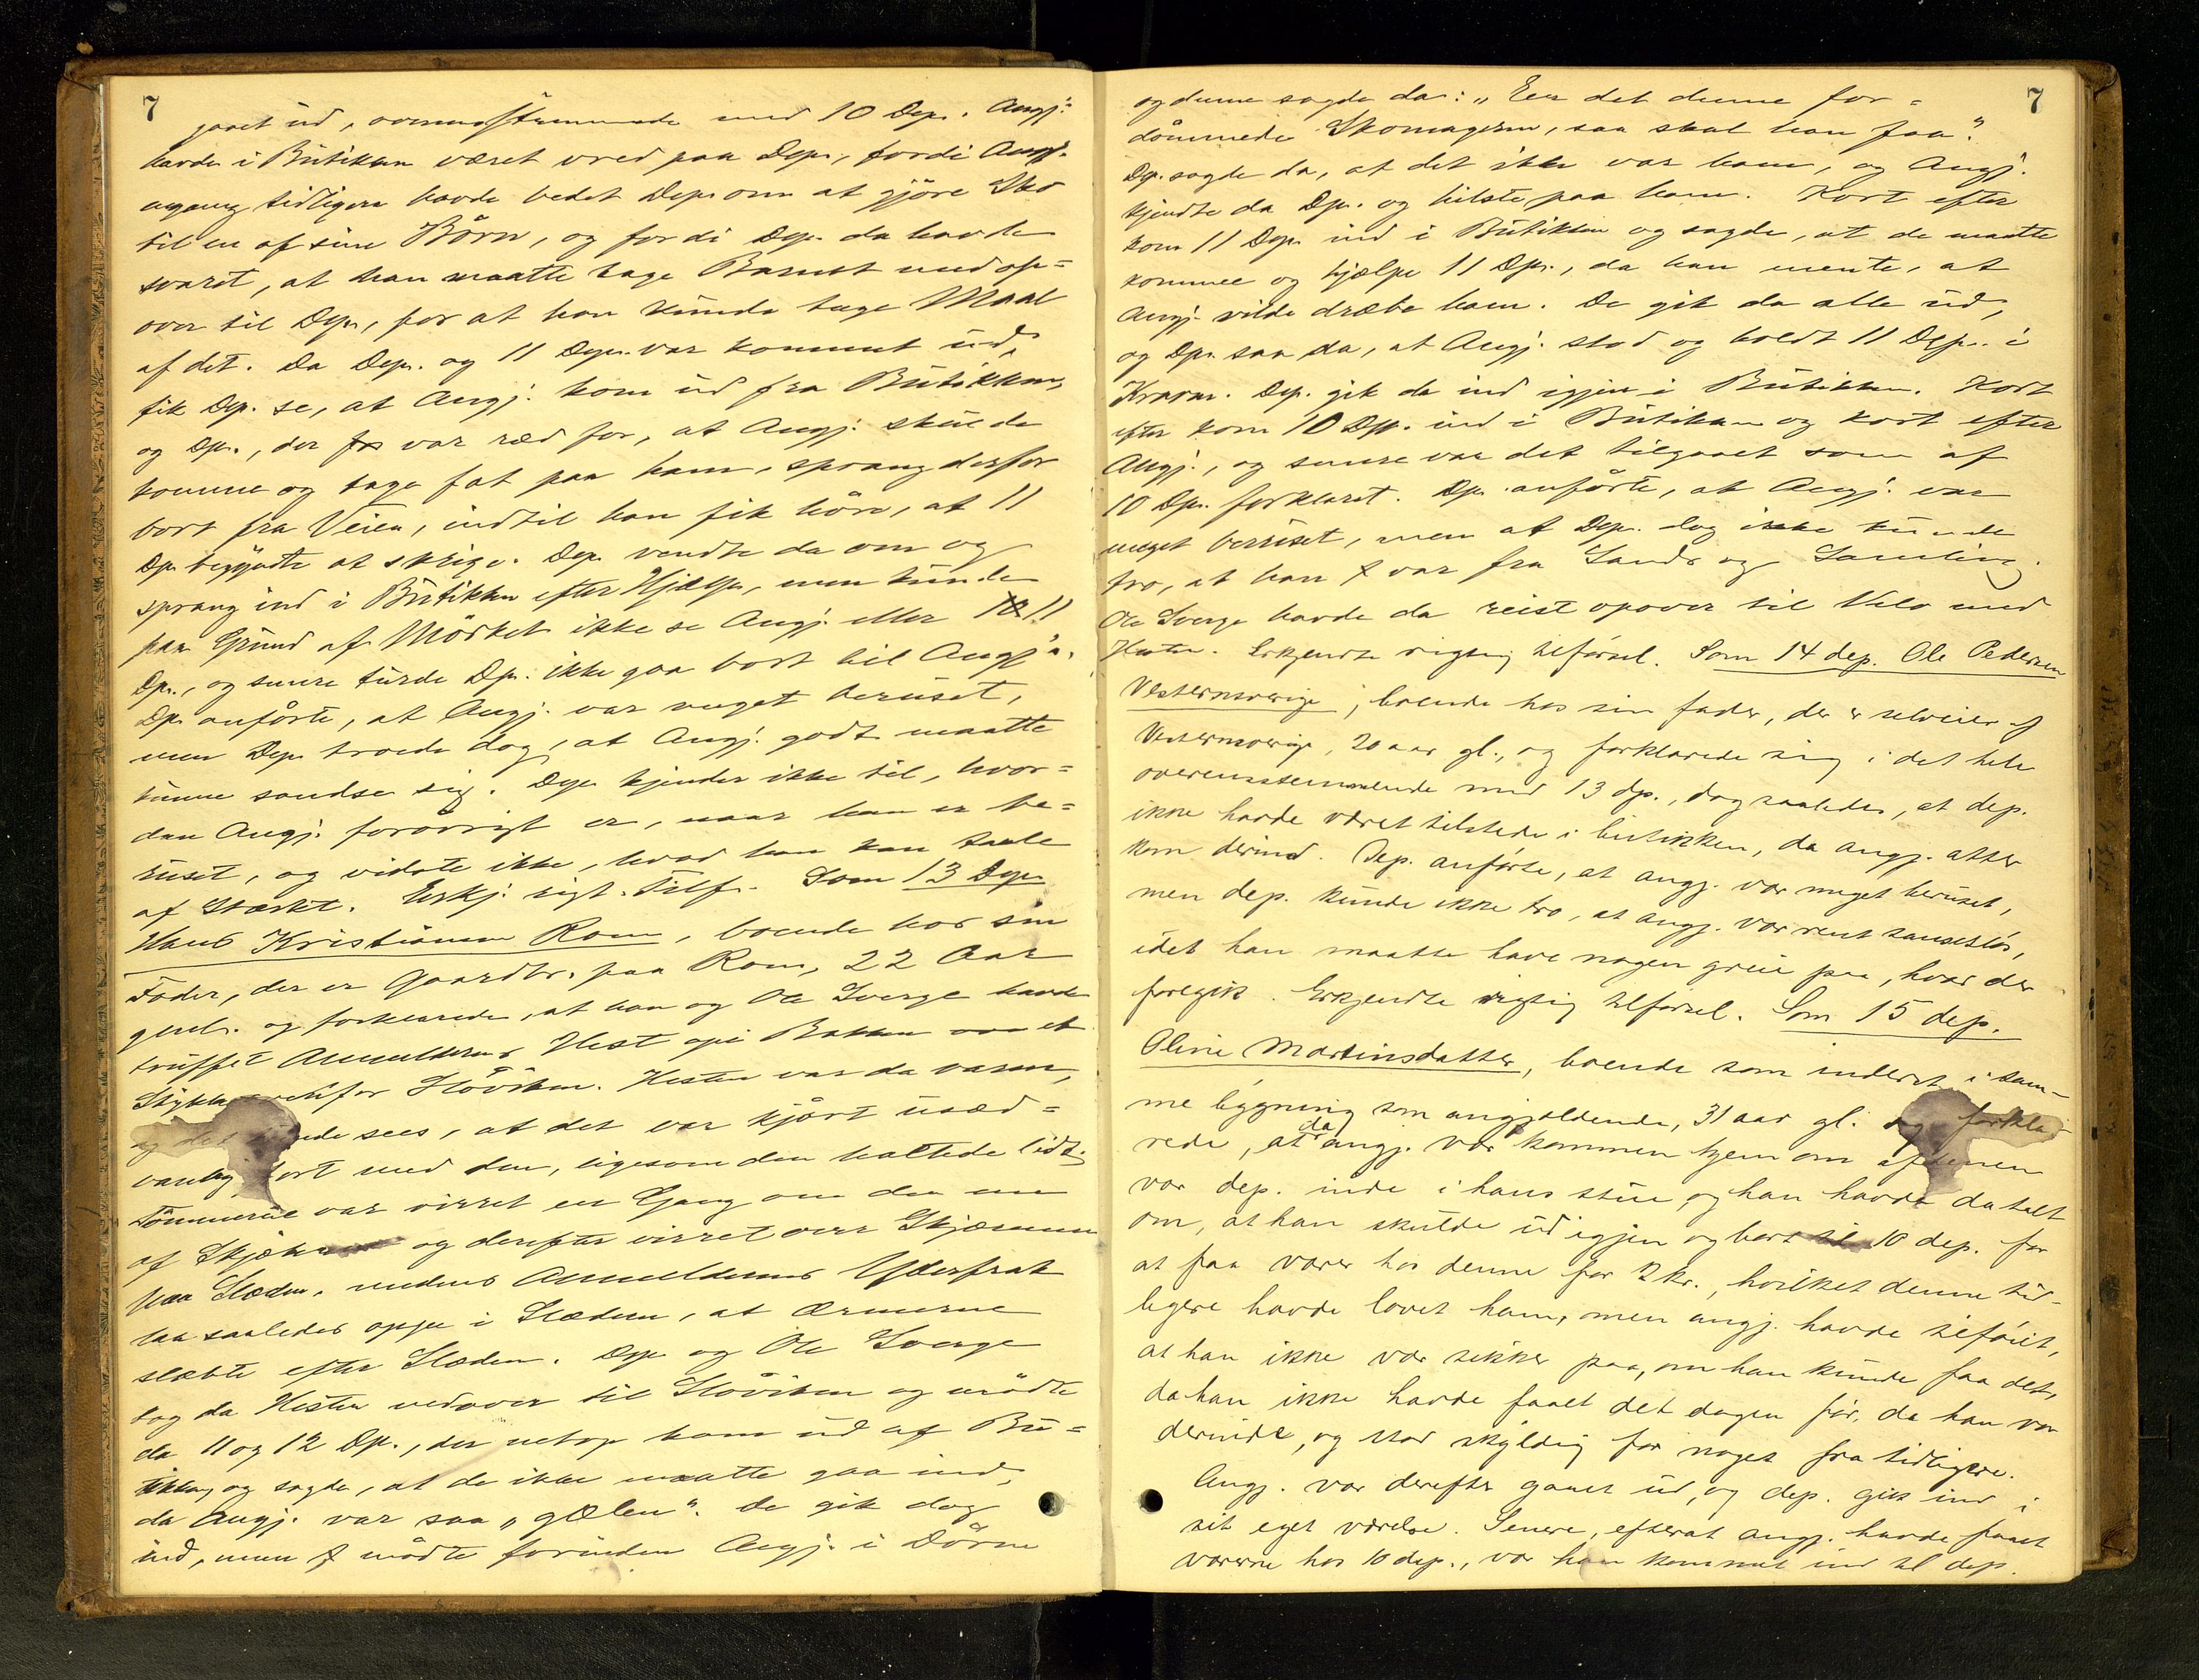 7
gaaet ud, overensstemmende med 10 Dep. Angj.
havde i Butiken været vred paa Dep., fordi Angj.
engang tidligere havde bedet Dep. om at gjöre Sko
til en af sine Börn, og fordi Dep. da havde
svaret, at han maatte tage Barnet med op=
over til Dep., for at han kunde tage Maal
af det. Da Dep. og 11 Dep. var kommet ud,
fik Dep. se, at Angj. kom ud fra Butikken,
og Dep., der var ræd for, at Angj. skulde
komme og tage fat paa ham, sprang derfor
bort fra Veien, indtil han fik höre, at 11
Dep. begyndte at skrige. Dep. vendte da om og
sprang ind i Butikken efter Hjælp, men kunde
paa Grund af Mörket ikke se Angj. eller 11
Dep., og senere turde Dep. ikke gaa bort til Angj.
Dep. anförte, at Angj. var meget beruset,
men Dep. troede dog, at Angj. godt maatte
kunne sandse sig. Dep. kjender ikke til, hvor=
dan Angj. forövrigt er, naar han er be=
ruset, og vidste ikke, hvad han kan taale
af Stærkt. Erkj. rigt. Tilf. Som 13 Dep.
Hans Kristiansen Rom, boende hos sin
Fader, der er Gaardbr. paa Rom, 22 Aar
gml. og forklarede, at han og Ole Sverge havde
truffet Anmelderens Hest opi Bakken et
Stykke for Stöviken. Hesten var da varm,
og det kunde sees, at det var kjört usæd=
vanlig fort med den, ligesom den haltede lidt.
Tömmerne var virret en Gang om den ene
af og derefter virret over Skjærmen
paa Slæden, medens Anmelderens Yderfrak
laa saaledes oppe i Slæden, at Ærmerne
slæbte efter Slæden. Dep. og Ole Sverge
tog da Hesten nedover til Stöviken og mödte
da 11 og 12 Dep., der netop kom ud af Bu=
tikken, og sagde, at de ikke maatte gaa ind,
da Angj. var saa "gælen". De gik dog
ind, men mödte forinden Angj. i Dören
7
og denne sagde da: "Eer det denne for=
dömmede Skomageren, saa skal han faa".
Dep. sagde da, at det ikke var ham, og Angj.
kjendte da Dep. og hilste paa ham. Kort efter
kom 11 Dep. ind i Butikken og sagde, at de maatte
komme og hjælpe 11 Dep., da han mente, at
Angj. vilde dræbe ham. De gik da alle ud,
og Dep. saa da, at Angj. stod og holdt 11 Dep. i
Kraven. Dep. gik da ind igjen i Butikken. Kort
efter kom 10 Dep. ind i Butiken og kort efter
Angj., og senere var det tilgaaet som af
10 Dep. forklaret. Dep. anförte, at Angj. var
meget beruset, men at Dep. dog ikke kunde
tro, at han var fra Sands og Samling.
Ole Sverge havde da reist opover til Velo med
Hesten. Erkjendte rigtig tilförsel. Som 14 dep. Ole Pedersen
Vesternsverige, boende hos sin fader, der er selveier af
Vesternsverige, 20 aar gl., og forklarede sig i det hele
overensstemmende med 13 dep., dog saaledes, at dep.
ikke havde været tilstede i butikken, da angj. atter
kom derind. Dep. anförte, at angj. var meget beruset,
men dep. kunde ikke tro, at angj. var rent sanseslös,
idet han maatte have nogen greie paa, hvad der
foregik. Erkjendte rigtig tilförsel. Som 15 dep.
Oline Martinsdatter, boende som inderst i sam-
me bygning som angjældende, 31 aar gl. og forkla-
rede, at da angj. var kommen hjem om aftenen
var dep. inde i hans stue, og han havde da talt
om, at han skulde ud igjen og bort til 10 dep. for
at faa varer hos denne for 2 kr., hvilket denne tid-
ligere havde lovet ham, men angj. havde tilföiet,
at han ikke var sikker paa, om han kunde faa det,
da han ikke havde faaet det dagen för, da han var
derinde, og stod skyldig for noget fra tidligere.
Angj. var derefter gaaet ud, og dep. gik ind i
sit eget værelse. Senere, efterat angj. havde faaet
varerne hos 10 dep., var han kommet ind til dep.